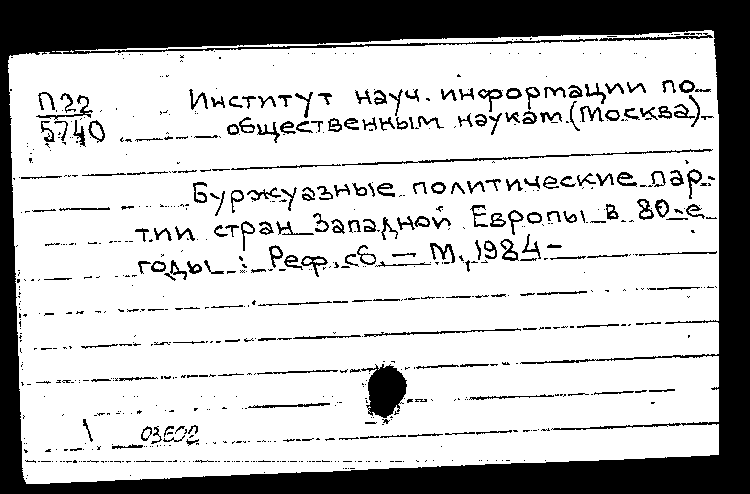 П22
5740
Институт науч. информации по
общественным наукам (Москва)
Буржуазные политические пар-
тии стран Западной Европы в 80-е
годы : Реф. сб. — М., 1984 -
03602